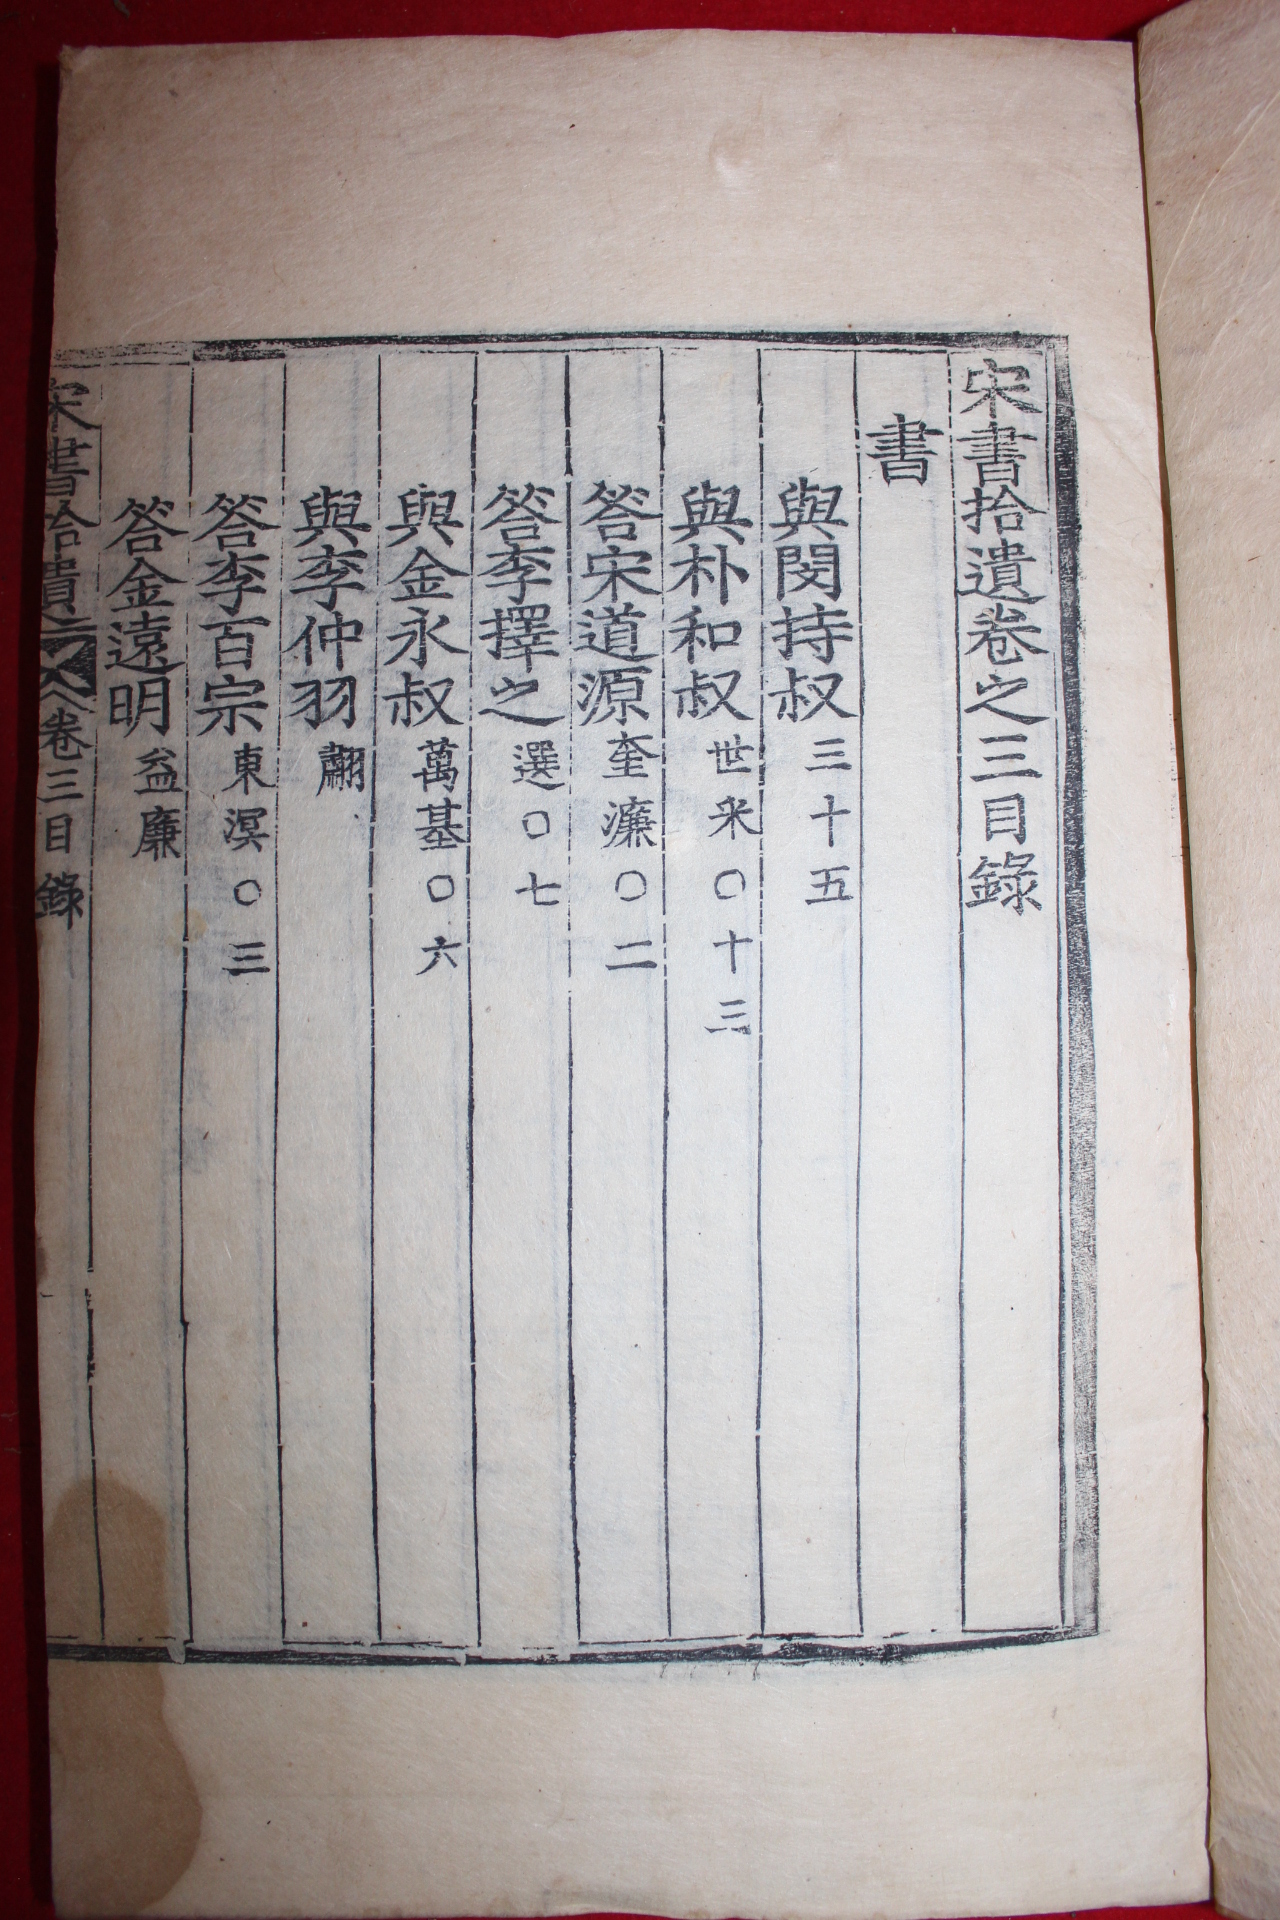 宋書拾遺卷之三目錄
書
與閔持叔三十五
與朴和叔世采〇十三
答宋道源奎濂〇二
答李擇之選〇七
與金永叔萬基〇六
與李仲羽翿
答李百宗東溟〇三
答金遠明益廉
宋書拾遺 卷三目錄